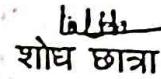 शोध छात्रा